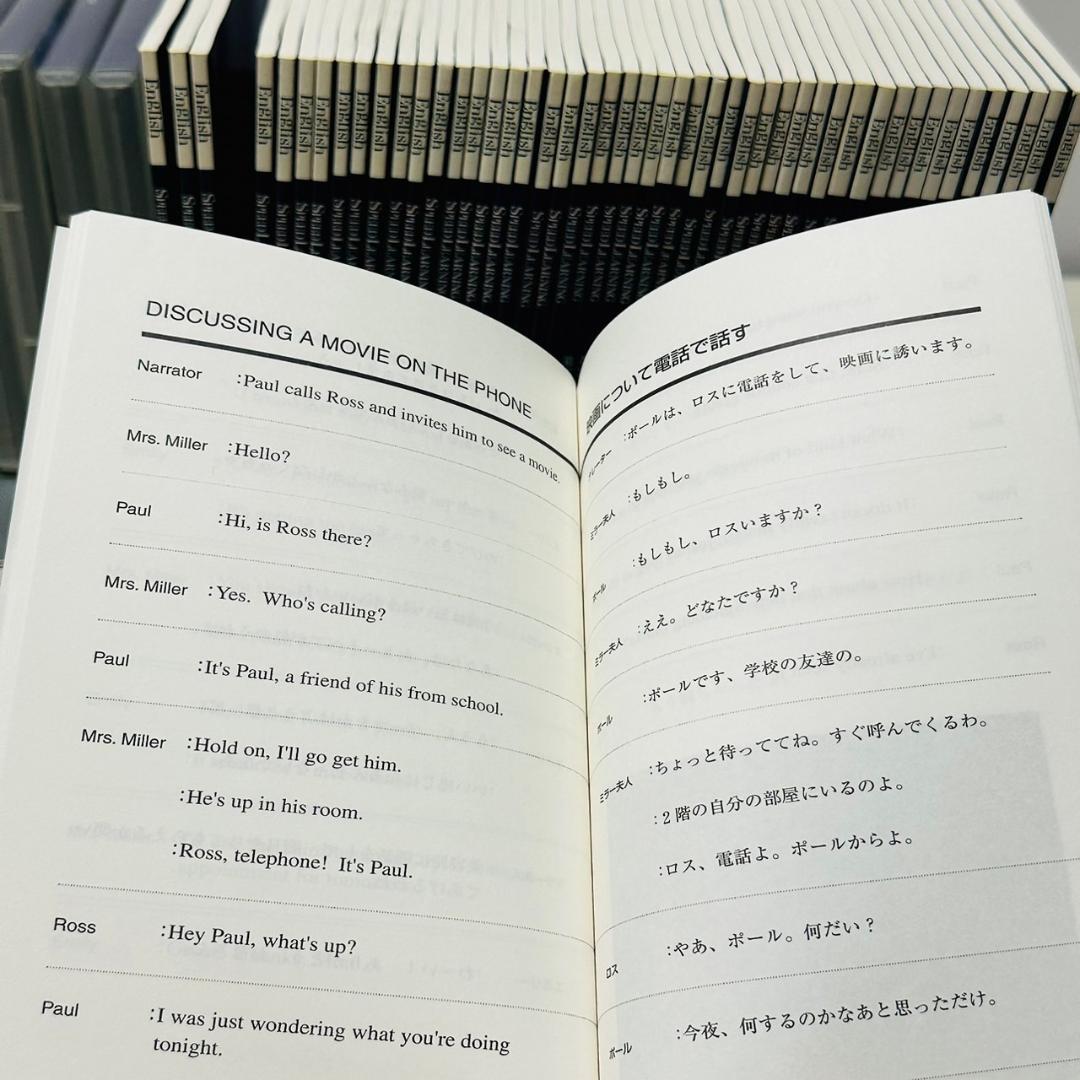 English English English English English English English English English English English English English English English English English English English English English English English English English English English English English English English English English English English English English English English
SPEED LEARNING SPEED LEARNING SPEED LEARNING SPEED LEARNING SPEED LEARNING SPEED LEARNING
DISCUSSING A MOVIE ON THE PHONE
Narrator :Paul calls Ross and invites him to see a movie.
Mrs. Miller :Hello?
Paul :Hi, is Ross there?
Mrs. Miller :Yes. Who's calling?
Paul :It's Paul, a friend of his from school.
Mrs. Miller :Hold on, I'll go get him.
:He's up in his room.
:Ross, telephone! It's Paul.
Ross :Hey Paul, what's up?
Paul :I was just wondering what you're doing
tonight.
映画について電話で話す
ナレーター :ポールは、ロスに電話をして、映画に誘います。
ミラー夫人 :もしもし。
ポール :もしもし、ロスいますか？
ミラー夫人 :ええ。どなたですか？
ポール :ポールです、学校の友達の。
ミラー夫人 :ちょっと待っててね。すぐ呼んでくるわ。
:2階の自分の部屋にいるのよ。
:ロス、電話よ。ポールからよ。
ロス :やあ、ポール。何だい？
ポール :今夜、何するのかなあと思っただけ。